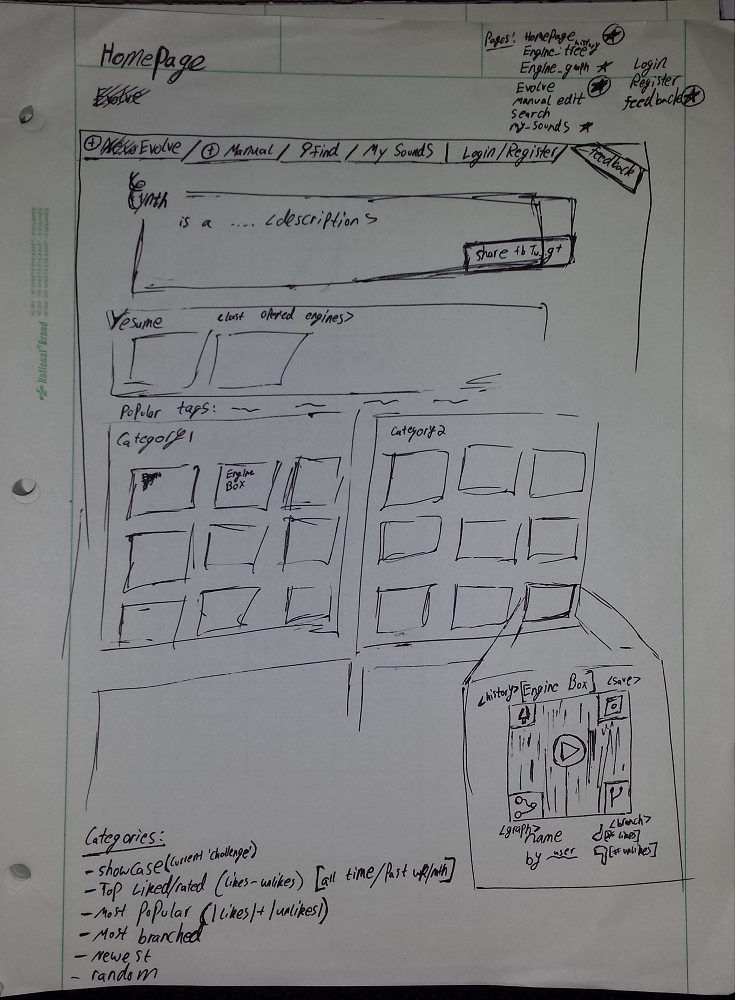 HomePage
Evolve
Pages: Homepage
Engine_tree history
Engine_graph
Evolve
manual edit
search
my_sounds
Login
Register
feedback
+ New Evolve / + Manual / Find / My Sounds | Login/Register/
feedback
Synth
is a .... <description>
share fb Tw g+
resume <last opened engines>
Popular tags:
Category 1
Category 2
Engine Box
<history> [Engine Box] <save>
<graph> <branch>
name [# likes]
by user [# unlikes]
Categories:
- showcase (current 'challenge')
- Top Liked/rated (likes-unlikes) [all time/Past wk/mth]
- Most Popular (|likes|+|unlikes|)
- Most branched
- Newest
- random
National Brand